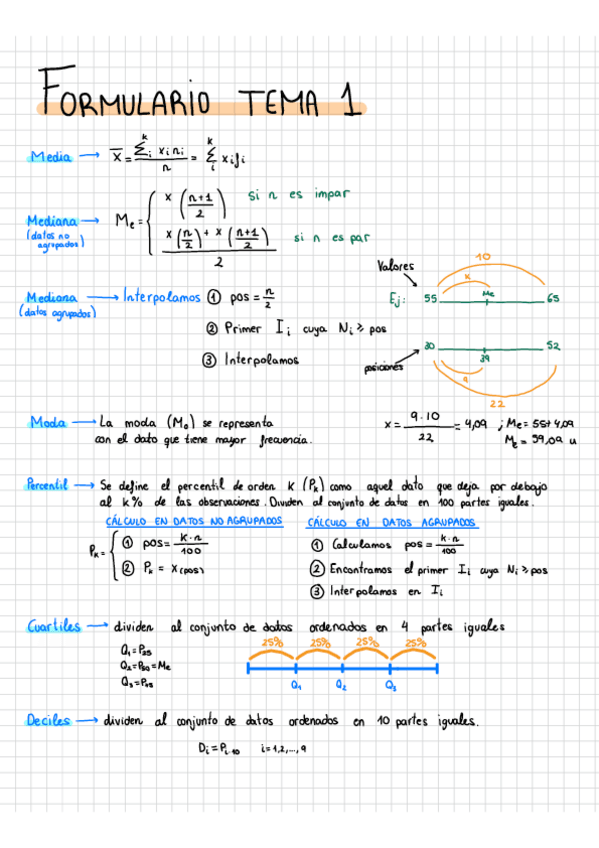 FORMULARIO TEMA 1
Media → x̄ = Σᵢᵏ xᵢnᵢ / n = Σᵢᵏ xᵢfᵢ
Mediana (datos no agrupados) → Me = { x((n+1)/2) si n es impar
(x(n/2) + x((n+1)/2)) / 2 si n es par
Mediana (datos agrupados) → Interpolamos ① pos = n/2
② Primer Iᵢ cuya Nᵢ ≥ pos
③ Interpolamos
Valores
10
x
Ej: 55 Me 65
30 39 52
posiciones
9
22
Moda → La moda (Mₒ) se representa
con el dato que tiene mayor frecuencia.
x = 9·10 / 22 = 4,09 ; Me = 55+4,09
Me = 59,09 u
Percentil → Se define el percentil de orden K (Pₖ) como aquel dato que deja por debajo
al K% de las observaciones. Dividen al conjunto de datos en 100 partes iguales.
CÁLCULO EN DATOS NO AGRUPADOS
Pₖ = { ① pos = K·n / 100
② Pₖ = X(pos)
CÁLCULO EN DATOS AGRUPADOS
① Calculamos pos = k·n / 100
② Encontramos el primer Iᵢ cuya Nᵢ ≥ pos
③ Interpolamos en Iᵢ
Cuartiles → dividen al conjunto de datos ordenados en 4 partes iguales
Q₁ = P₂₅
Q₂ = P₅₀ = Me
Q₃ = P₇₅
25% 25% 25% 25%
Q₁ Q₂ Q₃
Deciles → dividen al conjunto de datos ordenados en 10 partes iguales.
Dᵢ = Pᵢ·₁₀ i = 1,2,...,9